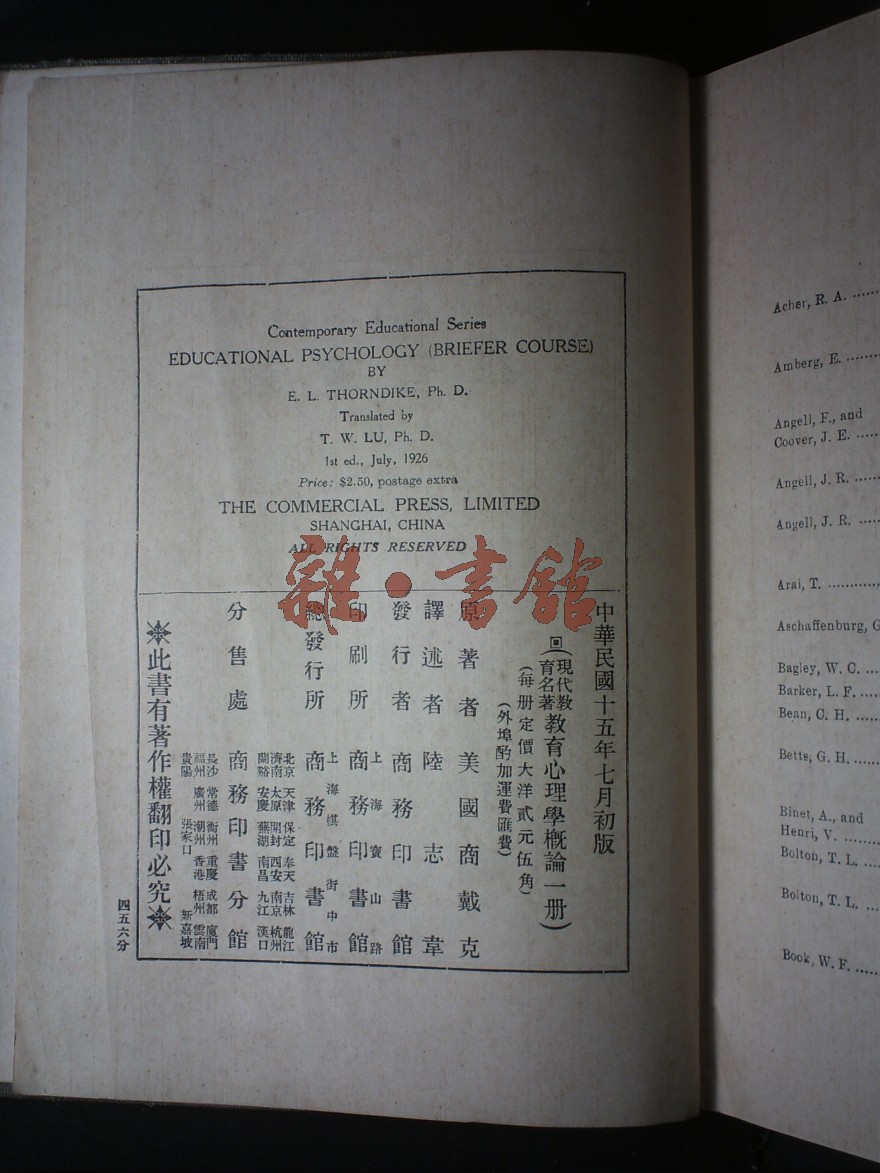 Contemporary Educational Series
EDUCATIONAL PSYCHOLOGY (BRIEFER COURSE)
BY
E. L. THORNDIKE, Ph. D.
Translated by
T. W. LU, Ph. D.
1st ed., July, 1926
Price: $2.50, postage extra
THE COMMERCIAL PRESS, LIMITED
SHANGHAI, CHINA
ALL RIGHTS RESERVED
雜·書館
中華民國十五年七月初版
(現代教育名著教育心理學概論一册)
(每册定價大洋貳元伍角)
(外埠酌加運費匯費)
原著者 美國商戴克
譯述者 陸志韋
發行者 商務印書館
印刷所 上海寶山路 商務印書館
總發行所 上海棋盤街中市 商務印書館
分售處 商務印書分館
北京 天津 保定 奉天 吉林 龍江
濟南 太原 開封 西安 南京 杭州
蘭谿 安慶 蕪湖 南昌 九江 漢口
長沙 常德 衡州 重慶 成都 廈門
福州 廣州 潮州 香港 梧州 雲南
貴陽 張家口 新嘉坡
※此書有著作權翻印必究※
四五六分
Acher, R. A.
Amberg, E.
Angell, F., and
Coover, J. E.
Angell, J. R.
Angell, J. R.
Arai, T.
Aschaffenburg, G
Bagley, W. C.
Barker, L. F.
Bean, C. H.
Betts, G. H.
Binet, A., and
Henri, V.
Bolton, T. L.
Bolton, T. L.
Book, W. F.